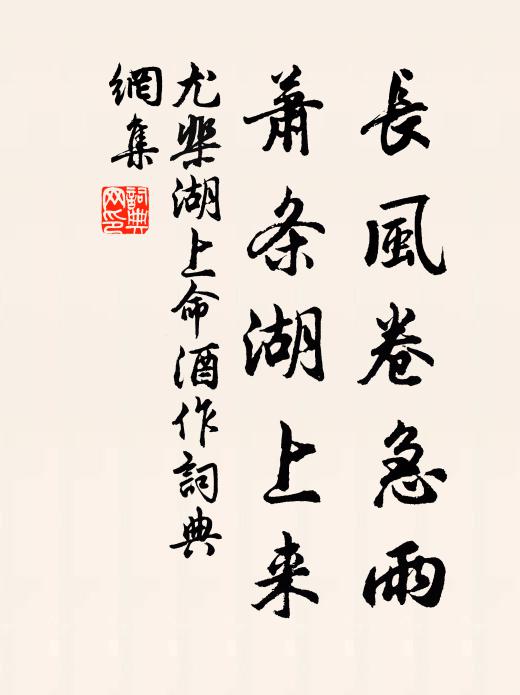 長風卷急雨
蕭条湖上来
尤棐湖上命酒作詞典
網集
詞典
网印